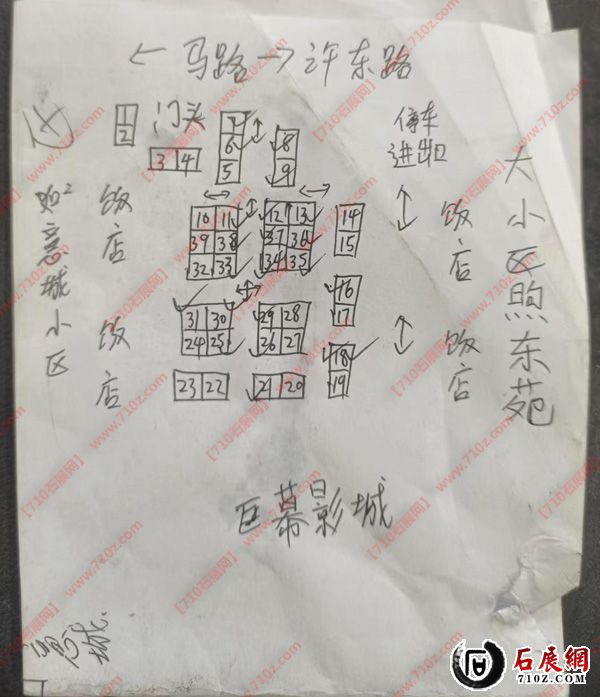 ← 马路 → 许东路
1
2
门头
3 4
7
6
5
8
9
停车
进出口
如意城小区
饭店
10 11
39 38
32 33
12 13
37 36
34 35
14
15
饭店
大小区煦东苑
饭店
31 30
24 25
29 28
26 27
16
17
18
19
饭店
23 22
21 20
巨幕影城
石展網
710z.com
【710石展网】
www.710z.com